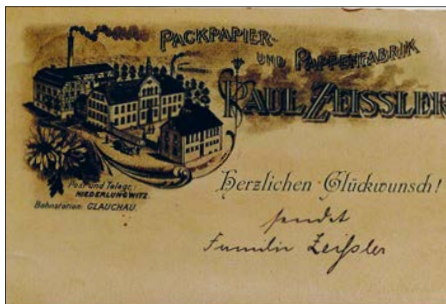 PACKPAPIER-
UND PAPPENFABRIK
PAUL ZEISSLER
Post und Telegr.:
NIEDERLUNGWITZ.
Bahnstation: GLAUCHAU.
Herzlichen Glückwunsch!
sendet
Familie Zeißler